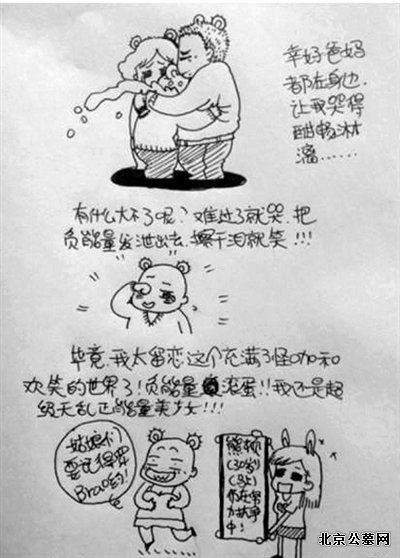 幸好爸妈
都在身边
让我哭得
酣畅淋
漓……
有什么大不了呢?难过了就哭.把
负能量发泄出去,擦干泪就笑!!!
毕竟,我太留恋这个充满了怪咖和
欢笑的世界了!负能量滚蛋!!我还是超
级无敌正能量美少女!!!
姑娘们
要记得穿
Bra哟!
熊顿
(30岁)
仍在努
力抗争
中!
北京公墓网